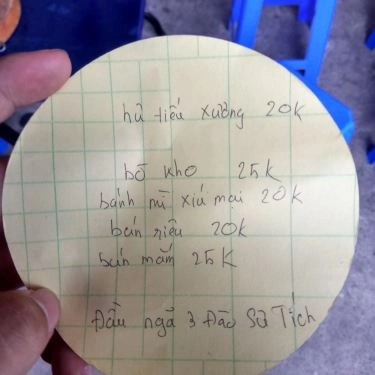 hủ tiếu xương 20K
bò kho 25K
bánh mì xíu mại 20K
bún riêu 20K
bún mắm 25K
Đầu ngã 3 Đào Sư Tích